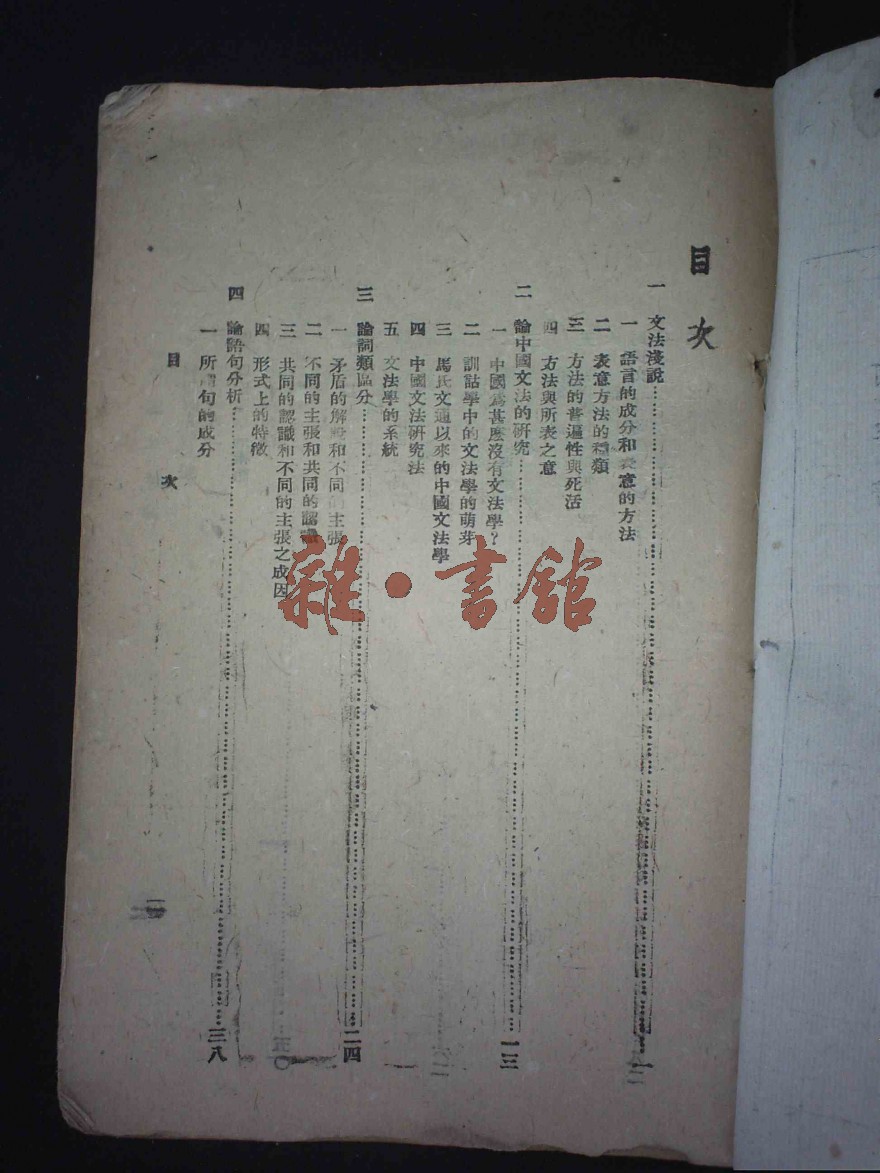 目次
一 文法淺說……一
一 語言的成分和表意的方法
二 表意方法的種類
三 方法的普遍性與死活
四 方法與所表之意
二 論中國文法的研究……一三
一 中國爲甚麼沒有文法學?
二 訓詁學中的文法學的萌芽
三 馬氏文通以來的中國文法學
四 中國文法研究法
五 文法學的系統
三 論詞類區分……二四
一 矛盾的解說和不同的主張
二 不同的主張和共同的認識
三 共同的認識和不同的主張之成因
四 形式上的特徵
四 論語句分析……三八
一 所謂句的成分
目次
一
雜·書館